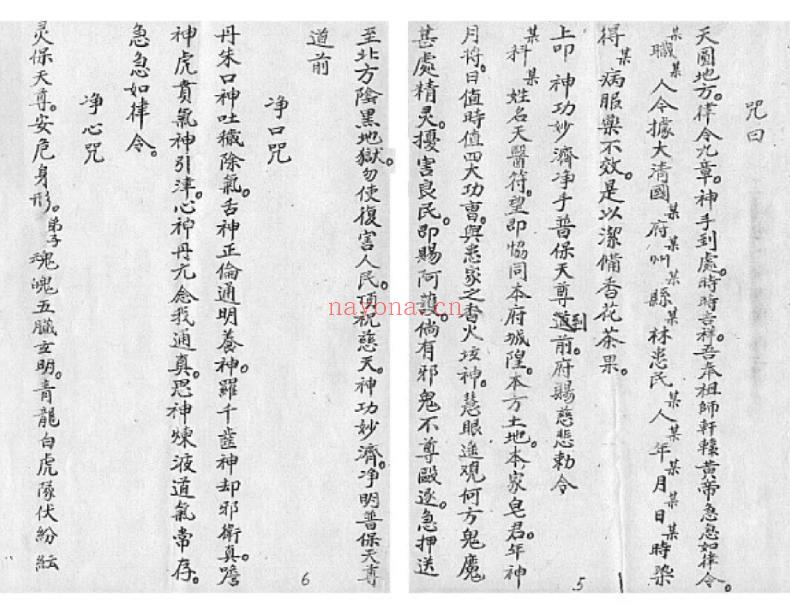 咒曰
天圓地方。律令九章。神手到處。時時吉祥。吾奉祖師軒轅黃帝急急如律令。
某職某人今據大清國某府某州某縣某林患民某人某年某月某日某時染
得某病服藥不效。是以潔備香花茶果。
上叩 神功妙濟净手普保天尊道到前。府賜慈悲勅令
某科某姓名天醫符。望即協同本府城隍。本方土地。本家皂君。年神
月將。日值時值四大功曹。與患家之香火垓神。慧眼遥观何方鬼魔
甚處精灵。擾害良民。即賜阿護。倘有邪鬼不尊毆逐。急押送
5
至北方陰黑地獄。勿使復害人民。頂祝慈天。神功妙濟。净明普保天尊
道前
净口咒
丹朱口神吐穢除氣。舌神正倫通明養神。羅千齒神却邪衛真。喉
神虎賁氣神引津。心神丹元念我通真。思神煉液道氣常存。
急急如律令。
净心咒
灵保天尊。安危身形。弟子魂魄五臟玄明。青龍白虎隊伏紛紜
6
nayona.cn